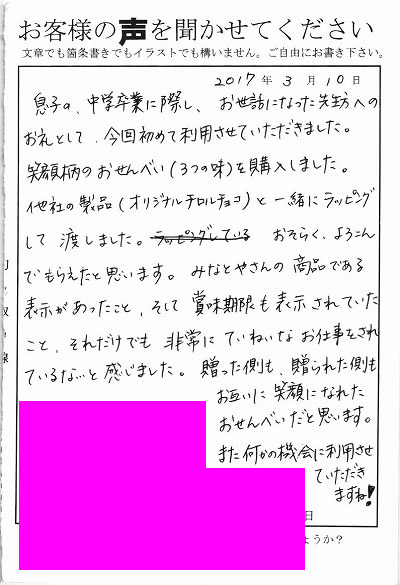 お客様の声を聞かせてください
文章でも箇条書きでもイラストでも構いません。ご自由にお書き下さい。
2017年 3月10日
息子の、中学卒業に際し、お世話になった先生方への
お礼として、今回初めて利用させていただきました。
笑顔柄のおせんべい(3つの味)を購入しました。
他社の製品(オリジナルチロルチョコ)と一緒にラッピング
して渡しました。ラッピングしている おそらく、よろこん
でもらえたと思います。みなとやさんの商品である
表示があったこと、そして賞味期限も表示されていた
こと、それだけでも非常にていねいなお仕事をされ
ているな…と感じました。贈った側も、贈られた側も
お互いに笑顔になれた
おせんべいだと思います。
また何かの機会に利用させ
ていただき
ますね!
日
ようか?